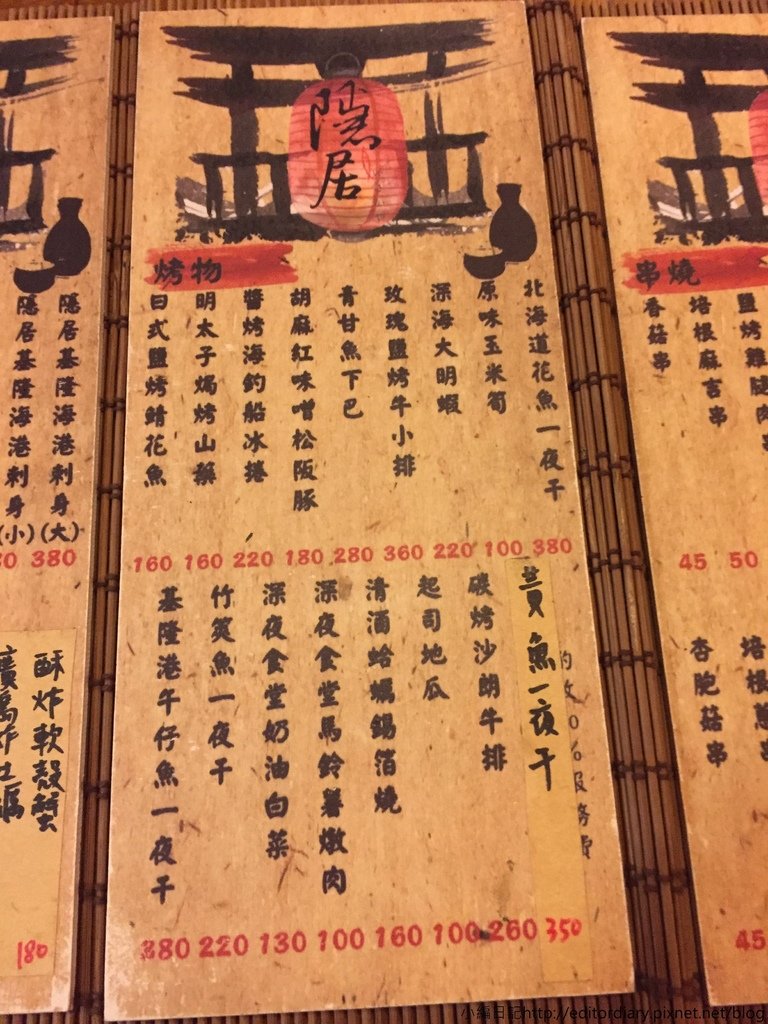 隱居
烤物
北海道花魚一夜干
380
原味玉米筍
100
深海大明蝦
220
玫瑰鹽烤牛小排
360
青甘魚下巴
280
胡麻紅味噌松阪豚
180
醬烤海釣船冰捲
220
明太子焗烤山藥
160
日式鹽烤鯖花魚
160
黃魚一夜干
350
碳烤沙朗牛排
260
起司地瓜
100
清酒蛤蠣錫箔燒
160
深夜食堂馬鈴薯燉肉
100
深夜食堂奶油白菜
130
竹筴魚一夜干
220
基隆港午仔魚一夜干
380
服務費
串燒
鹽烤雞腿肉串
培根麻吉串
50
香菇串
45
杏鮑菇串
45
隱居基隆海港刺身(大)
380
隱居基隆海港刺身(小)
酥炸軟殼蟹
180
小編日記http://editordiary.pixnet.net/blog